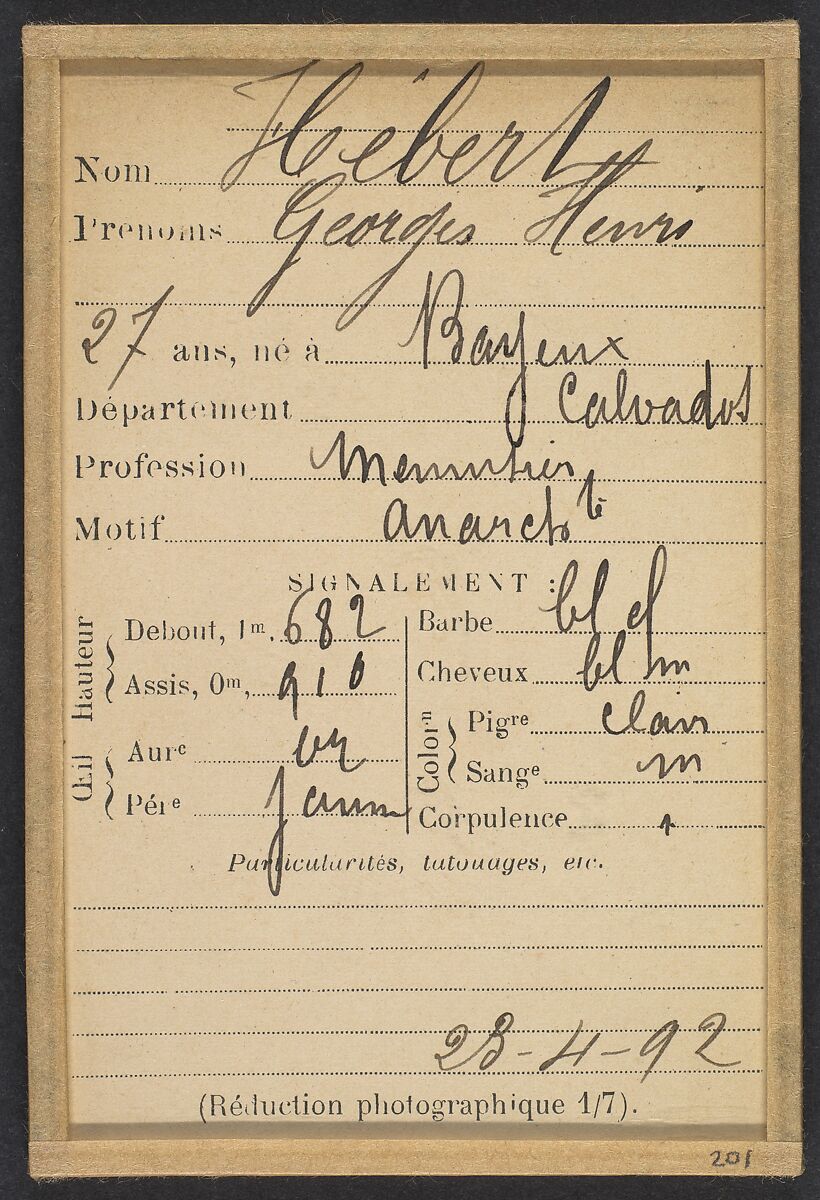 Nom Hébert
Prénoms Georges Henri
27 ans, né à Bayeux
Département Calvados
Profession Menuisier
Motif anarchte
SIGNALEMENT :
Hauteur
Debout, 1m, 682
Assis, 0m, 910
Œil
Aure
Pére jaun
Barbe bl cl
Cheveux bl m
Colorn
Pigre clair
Sange m
Corpulence
Particularités, tatouages, etc.
23-4-92
(Réduction photographique 1/7).
201